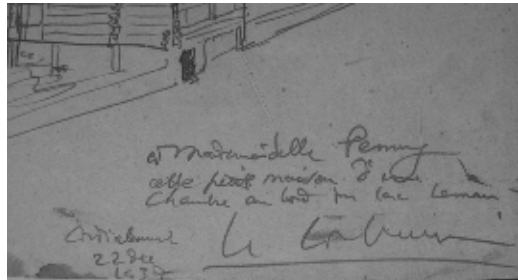 à Mademoiselle Penny
cette petite maison d'une
Chambre au bord du lac Leman
Cordialement
22 dec
1937
Le Corbusier